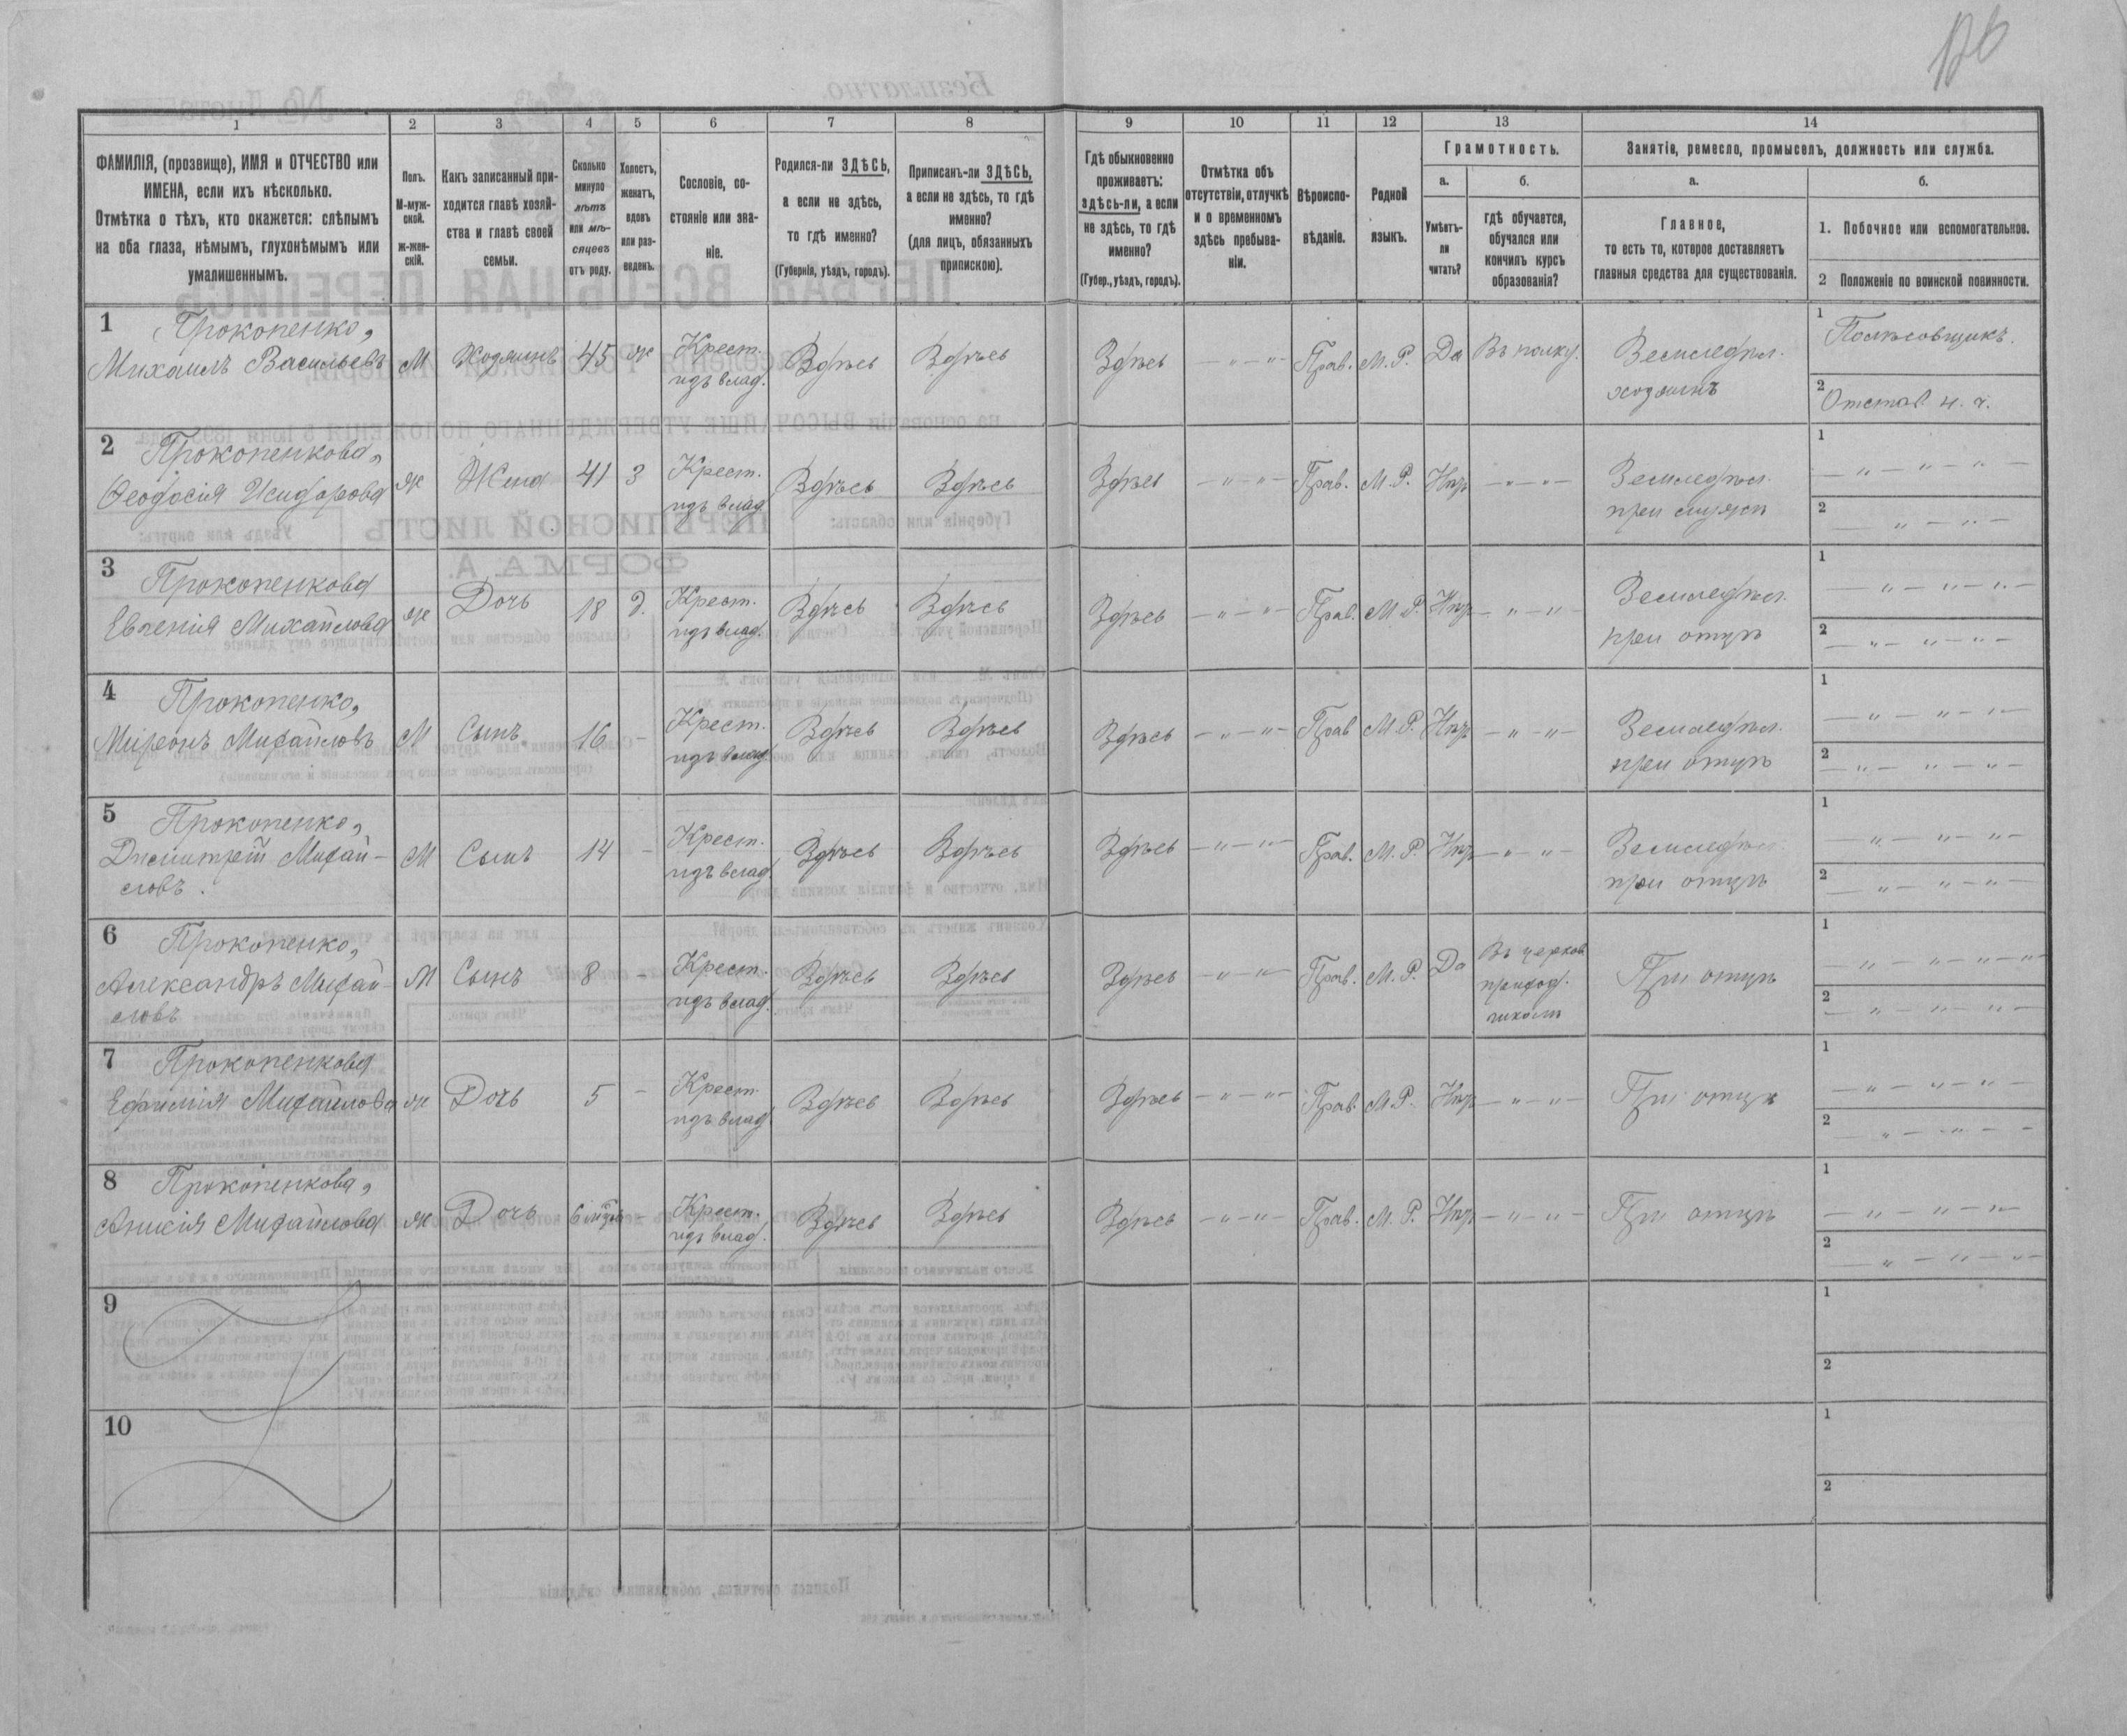 126
1 2 3 4 5 6 7 8 9 10 11 12 13 14
ФАМИЛІЯ, (прозвище), ИМЯ и ОТЧЕСТВО или
ИМЕНА, если ихъ нѣсколько.
Отмѣтка о тѣхъ, кто окажется: слѣпымъ
на оба глаза, нѣмымъ, глухонѣмымъ или
умалишеннымъ.
Полъ.
М-муж-
ской.
ж-жен-
скій.
Какъ записанный при-
ходится главѣ хозяй-
ства и главѣ своей
семьи.
Сколько
минуло
лѣтъ
или мѣ-
сяцевъ
отъ роду.
Холостъ,
женатъ,
вдовъ
или раз-
веденъ.
Сословіе, со-
стояніе или зва-
ніе.
Родился-ли ЗДѢСЬ,
а если не здѣсь,
то гдѣ именно?
(Губернія, уѣздъ, городъ).
Приписанъ-ли ЗДѢСЬ,
а если не здѣсь, то гдѣ
именно?
(для лицъ, обязанныхъ
припискою).
Гдѣ обыкновенно
проживаетъ:
здѣсь-ли, а если
не здѣсь, то гдѣ
именно?
(Губер., уѣздъ, городъ).
Отмѣтка объ
отсутствіи, отлучкѣ
и о временномъ
здѣсь пребыва-
ніи.
Вѣроиспо-
вѣданіе.
Родной
языкъ.
Грамотность.
а.
Умѣетъ-
ли
читать?
б.
гдѣ обучается,
обучался или
кончилъ курсъ
образованія?
Занятіе, ремесло, промыселъ, должность или служба.
а.
Главное,
то есть то, которое доставляетъ
главныя средства для существованія.
б.
1. Побочное или вспомогательное.
2 Положеніе по воинской повинности.
1 Прокопенко,
Михаилъ Васильевъ М Хозяинъ 45 ж Крест. Здѣсь Здѣсь Здѣсь — " — " — Прав. М.Р. Да Въ полку. Земледѣл. 1 Полѣсовщикъ.
изъ влад. хозяинъ 2 Отстав н. ч.
2 Прокопенкова,
Ѳеодосія Исидорова ж Жена 41 З Крест. Здѣсь Здѣсь Здѣсь — " — " — Прав. М.Р. Нѣт — " — " — Земледѣл. 1 — " — " — " —
изъ влад. при мужѣ 2 — " — " —
3 Прокопенкова
Евгенія Михайлова ж Дочь 18 д. Крест. Здѣсь Здѣсь Здѣсь — " — " — Прав. М.Р. Нѣт — " — " — Земледѣл. 1 — " — " — " —
изъ влад. при отцѣ 2 — " — " — " —
4 Прокопенко,
Миронъ Михайловъ М Сынъ 16 - Крест. Здѣсь Здѣсь Здѣсь — " — " — Прав М.Р. Нѣт — " — " — Земледѣл. 1 — " — " — " —
изъ влад. при отцѣ 2 — " — " — " —
5 Прокопенко,
Дмитрій Михай- М Сынъ 14 - Крест. Здѣсь Здѣсь Здѣсь — " — " — Прав. М.Р. Нѣт — " — " — Земледѣл. 1 — " — " — " —
ловъ. изъ влад. при отцѣ 2 — " — " — " —
6 Прокопенко,
Александръ Михай- М Сынъ 8 - Крест. Здѣсь Здѣсь Здѣсь — " — " — Прав. М.Р. Да Въ церков. При отцѣ 1 — " — " — " — " —
ловъ изъ влад. приход. 2 — " — " — " —
школѣ
7 Прокопенкова
Ефимія Михайлова ж Дочь 5 - Крест. Здѣсь Здѣсь Здѣсь — " — " — Прав. М.Р. Нѣт — " — " — При отцѣ 1 — " — " — " —
изъ влад. 2 — " — " — " —
8 Прокопенкова,
Михайлова ж Дочь 6 - Крест. Здѣсь Здѣсь Здѣсь — " — " — Прав. М.Р. Нѣт — " — " — При отцѣ 1 — " — " — " —
изъ влад. 2 — " — " — " —
9 1
2
10 1
2